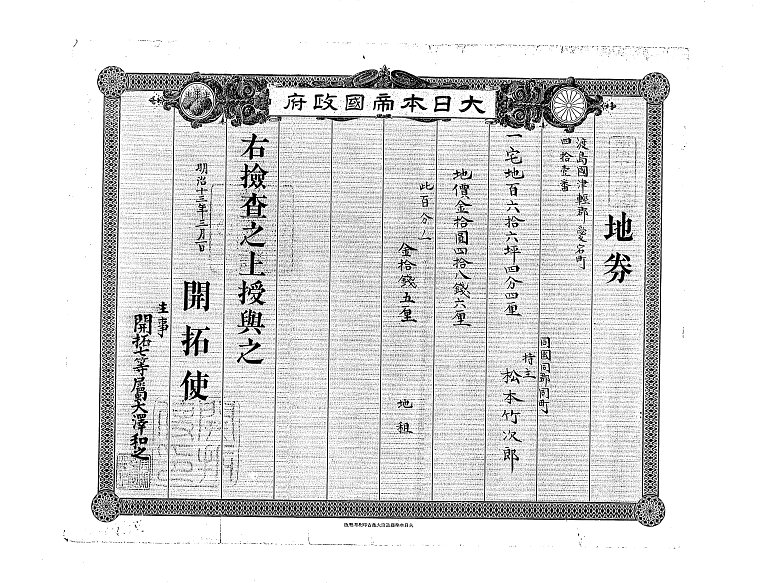 大日本帝國政府
地券
渡島國津輕郡
四拾壹番
一宅地百六拾六坪四分四厘
同國同郡同町
持主 松本竹次郎
地價金拾圓四拾八錢六厘
此百分ノ一
金拾錢五厘 地租
右撿查之上授與之
明治十三年二月一日
開拓使
主事
開拓七等屬大澤和之